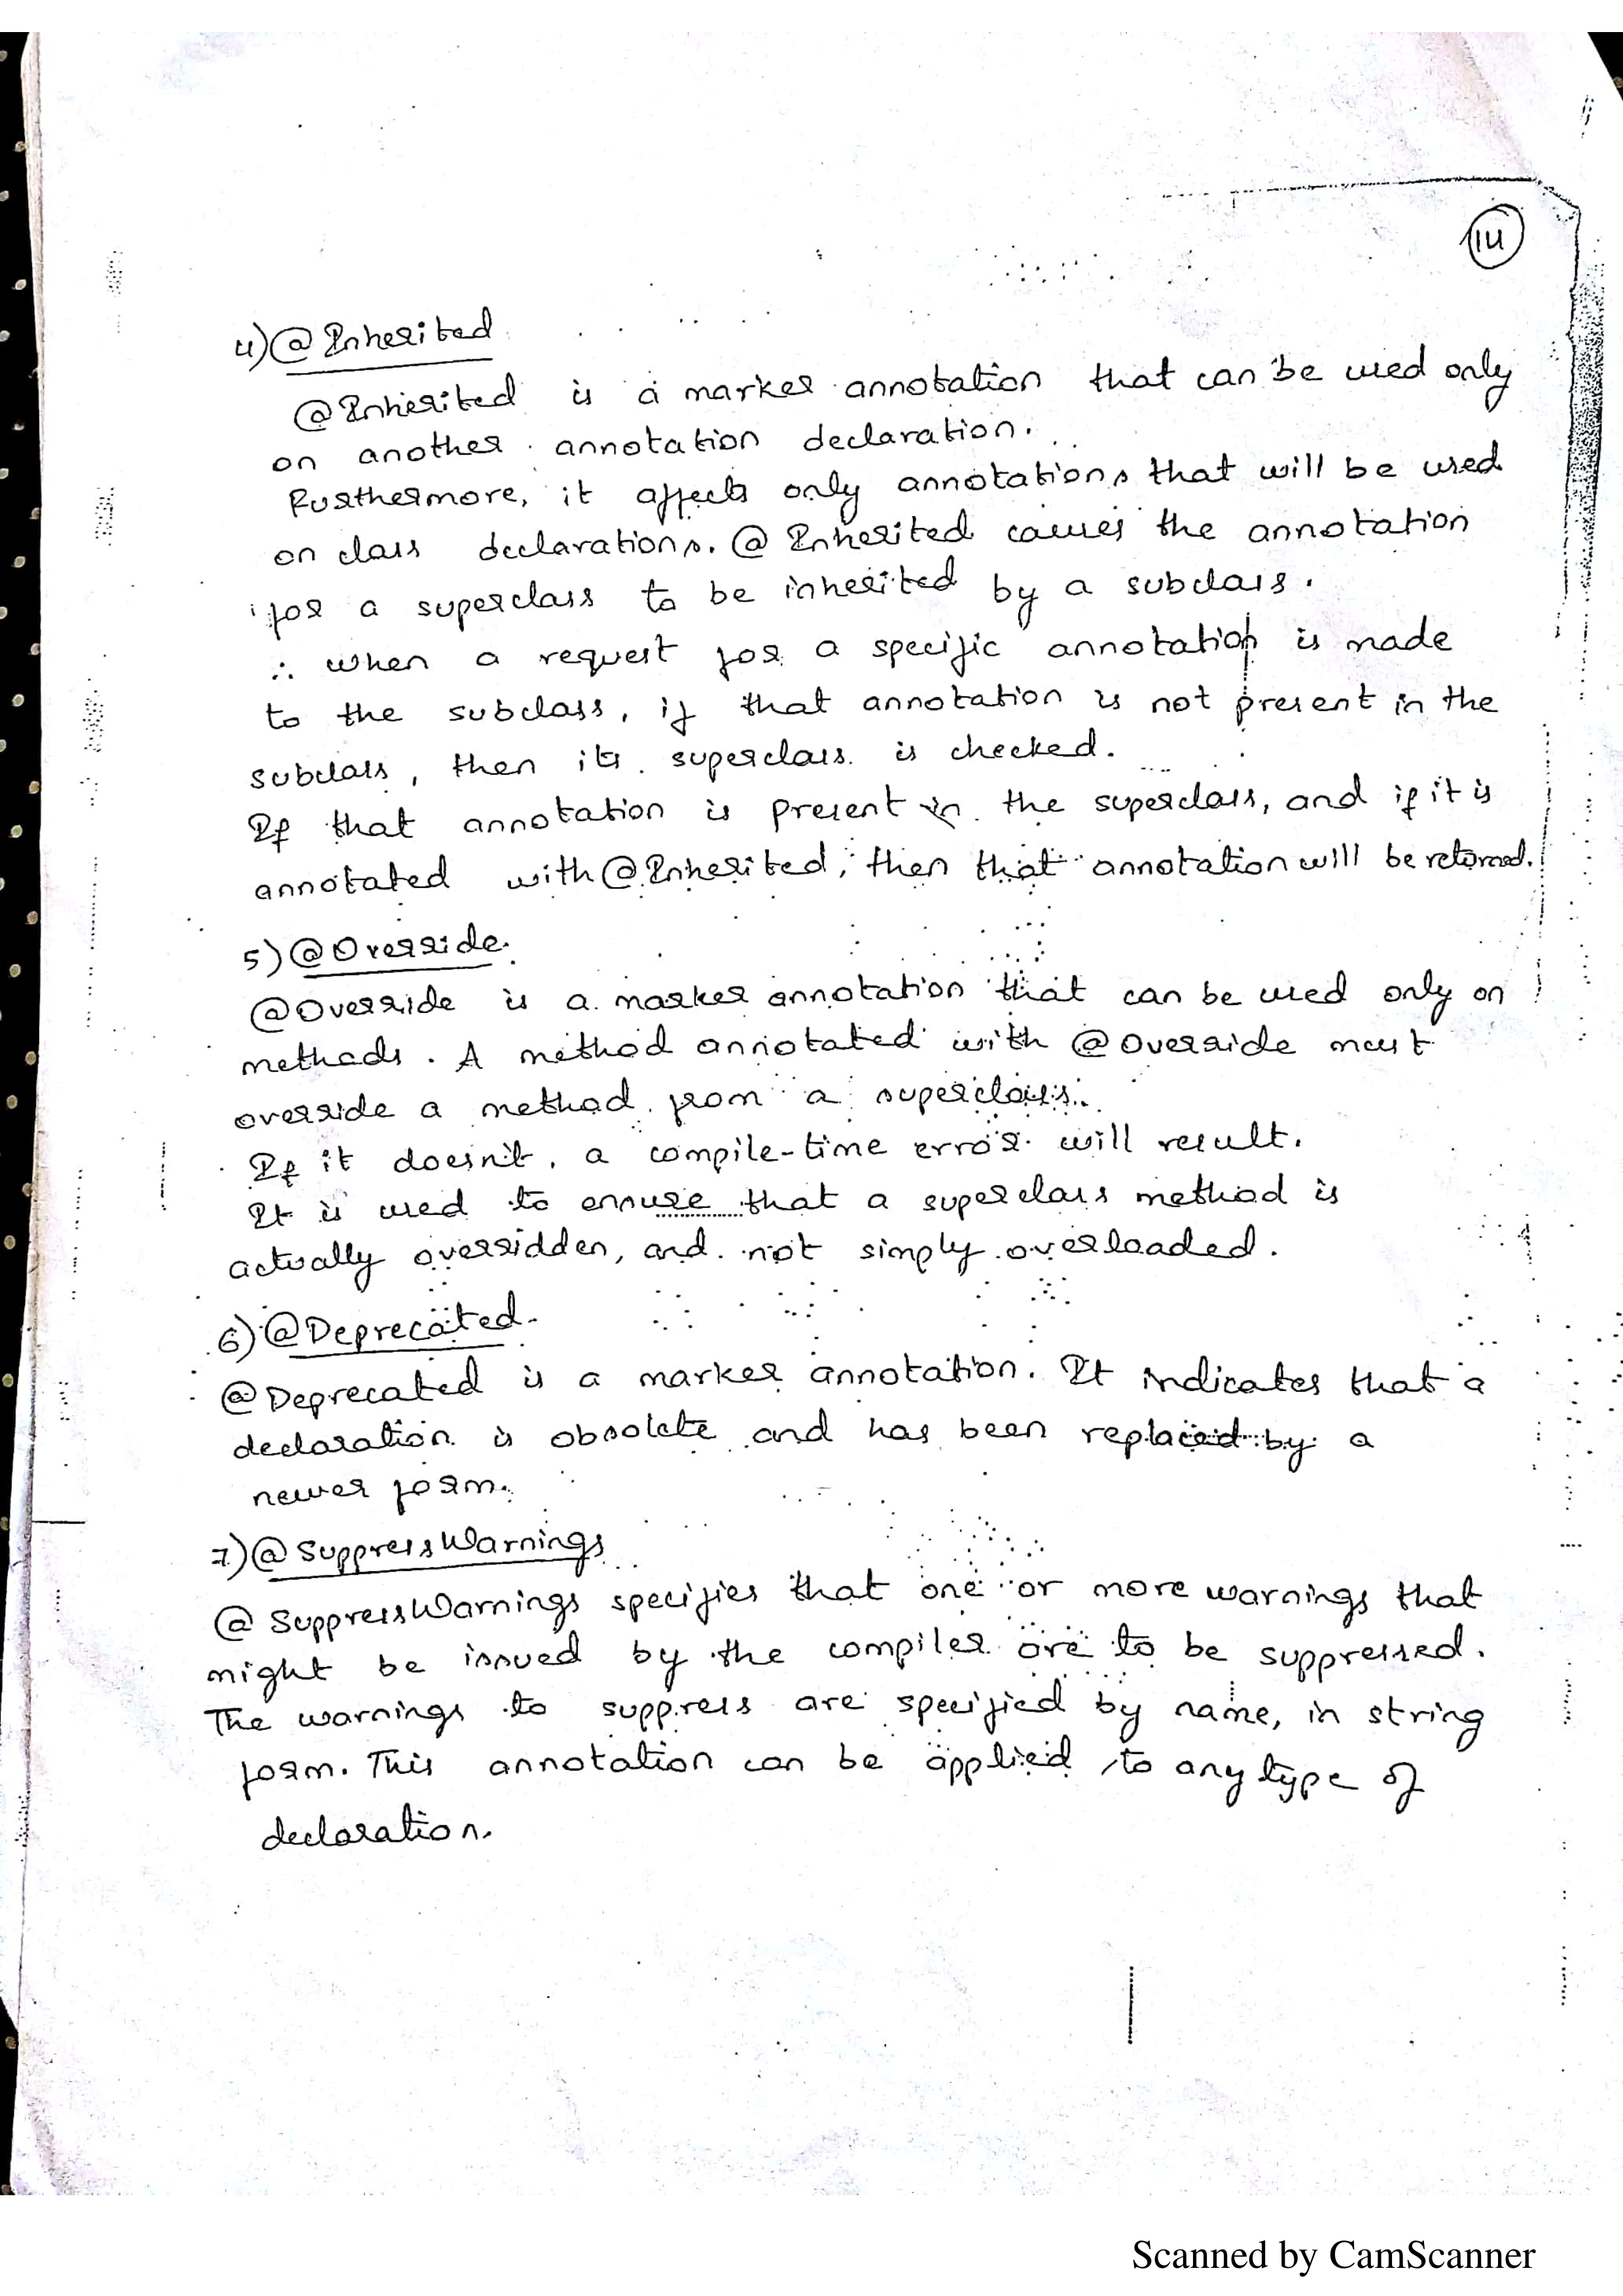 14
4) @Inherited
@Inherited is a marker annotation that can be used only
on another annotation declaration.
Furthermore, it affects only annotations that will be used
on class declarations. @Inherited causes the annotation
for a superclass to be inherited by a subclass.
∴ when a request for a specific annotation is made
to the subclass, if that annotation is not present in the
subclass, then its superclass is checked.
If that annotation is present in the superclass, and if it is
annotated with @Inherited, then that annotation will be returned.
5) @Override.
@Override is a marker annotation that can be used only on
methods. A method annotated with @Override must
override a method from a superclass.
If it doesn't, a compile-time error will result.
It is used to ensure that a superclass method is
actually overridden, and not simply overloaded.
6) @Deprecated.
@Deprecated is a marker annotation. It indicates that a
declaration is obsolete and has been replaced by a
newer form.
7) @SuppressWarnings
@SuppressWarnings specifies that one or more warnings that
might be issued by the compiler are to be suppressed.
The warnings to suppress are specified by name, in string
form. This annotation can be applied to any type of
declaration.
Scanned by CamScanner